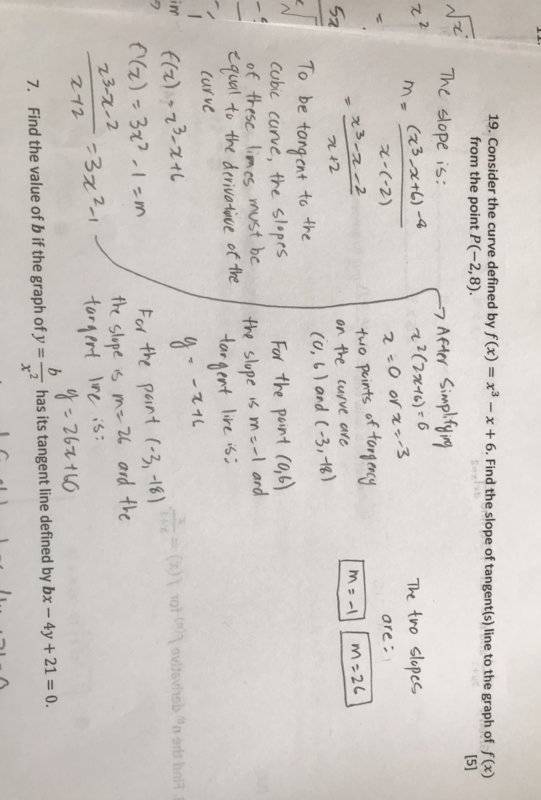 19. Consider the curve defined by f(x) = x³ − x + 6. Find the slope of tangent(s) line to the graph of f(x)
from the point P(−2,8). [5]
The slope is:
m = (x³-x+6)-8 / x-(-2)
= x³-x-2 / x+2
To be tangent to the
cubic curve, the slopes
of these lines must be
equal to the derivative of the
curve
f(x) = x³-x+6
f'(x) = 3x²-1 = m
x³-x-2 / x+2 = 3x²-1
→ After simplifying
x²(2x+6)=0
x=0 or x=-3
two points of tangency
on the curve are
(0,6) and (-3,-18)
For the point (0,6)
the slope is m=-1 and
tangent line is:
y = -x+6
For the point (-3,-18)
the slope is m=26 and the
tangent line is:
y = 26x+60
The two slopes
are:
m=-1 m=26
7. Find the value of b if the graph of y = b/x² has its tangent line defined by bx − 4y + 21 = 0.